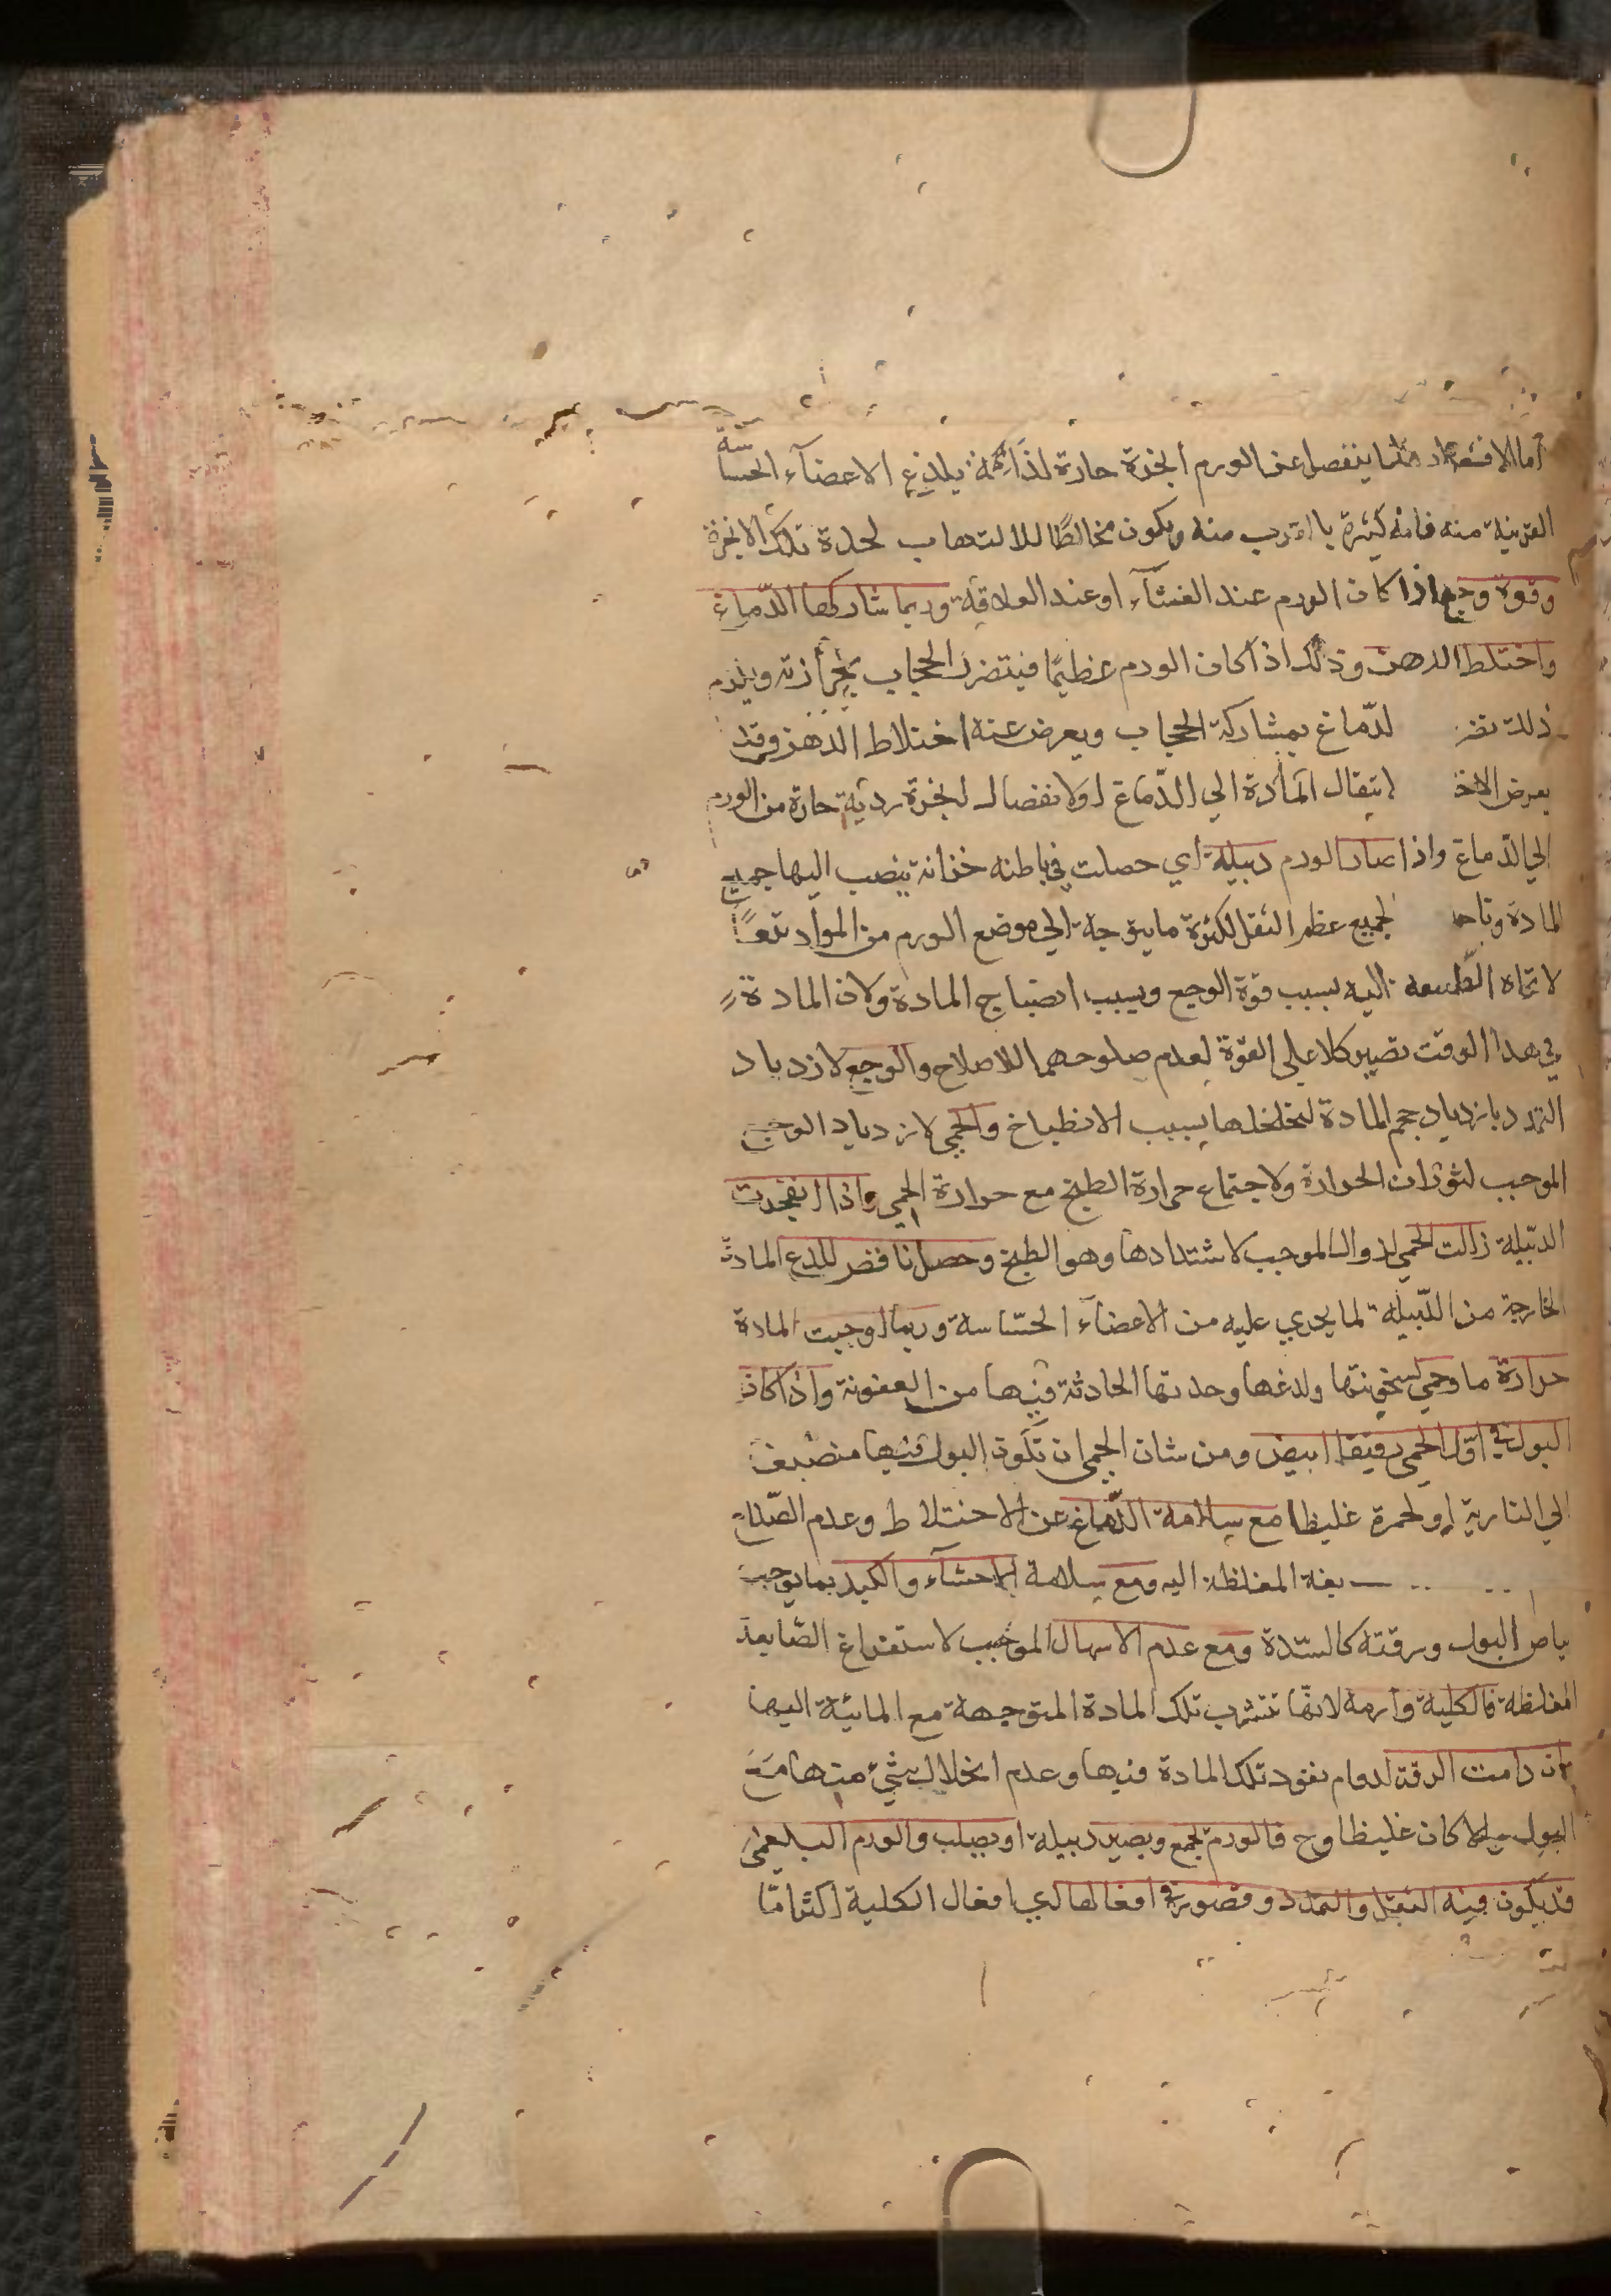 أما الاقشعرار فلما ينفصل عن الورم ابخرة حارة لذاعة يلذع الاعضاء الحساسة
القريبة منه فانه كثيرة بالقرب منه ويكون مخالطًا للالتهاب لحدة تلك الابخرة
وقوة وجع اذا كان الورم عند الغشآء او عند العلاقة وربما شاركها الدّماغ
واختلط الذهن وذلك اذا كان الورم عظيمًا فيتضرر الحجاب بحرارته ويلزم
ذلك تضر لدّماغ بمشاركة الحجاب ويعرض عنه اختلاط الذهن وقد
يعرض الاخ انتقال المادة الي الدّماغ اولانفصال ابخرة ردية حارة من الورم
الي الدماغ واذا صار الورم دبيلة اي حصلت في باطنه خزانة ينصب اليها جميع
المادة وتاحـ لجميع عظم الثقل لكثرة ما يتوجة الي موضع الورم من المواد تبعًا
لاتجاه الطبيعه اليه بسبب قوة الوجع وبسبب انضاج المادة ولان المادة
في هذا الوقت تصير كلا علي القوة لعدم صلوحها للاصلاح والوجع لازدياد
التمدد بازدياد حجم المادة لتخلخلها بسبب الانطباخ والحمي لازدياد الوجع
الموجب لثوران الحرارة ولاجتماع حرارة الطبخ مع حرارة الحمي واذا انفجرت
الدبّيلة زالت الحمي لزوال الموجب لاشتدادها وهو الطبخ وحصل نافض للذع المادة
الخارجة من الدّبيلة لما يجري عليه من الاعضآء الحسّاسة وربما اوجبت المادة
حرارة ما وحمي لسخونتها ولدغها وحدتها الحادثة فيها من العفونة واذا كان
البول في اوّل الحمي رقيقا ابيض ومن شان الحمي ان تكون البول فيها منصبغ
الي النارية او لحمرة غليظا مع سلامة الدّماغ عن الاختلاط وعدم الصّداع
بغة المغلظة اليه ومع سلامة الاحشآء والكبد بما يوجب
بياض البول ورقته كالسّدة ومع عدم الاسهال الموجب لاستفراغ الصّابغة
المغلظة فالكلية وارمة لانها تتشرب تلك المادة المتوجهة مع المائية اليها
ان دامت الرقة لدوام نفوذ تلك المادة فيها وعدم انحلال شيء منها مع
البول والا كان غليظا وح فالورم يجمع ويصير دبيلة او يصلب والورم البلغمي
قد يكون فيه الثقل والتمدد وقصور في افعالها اي افعال الكلية اكثر امّا